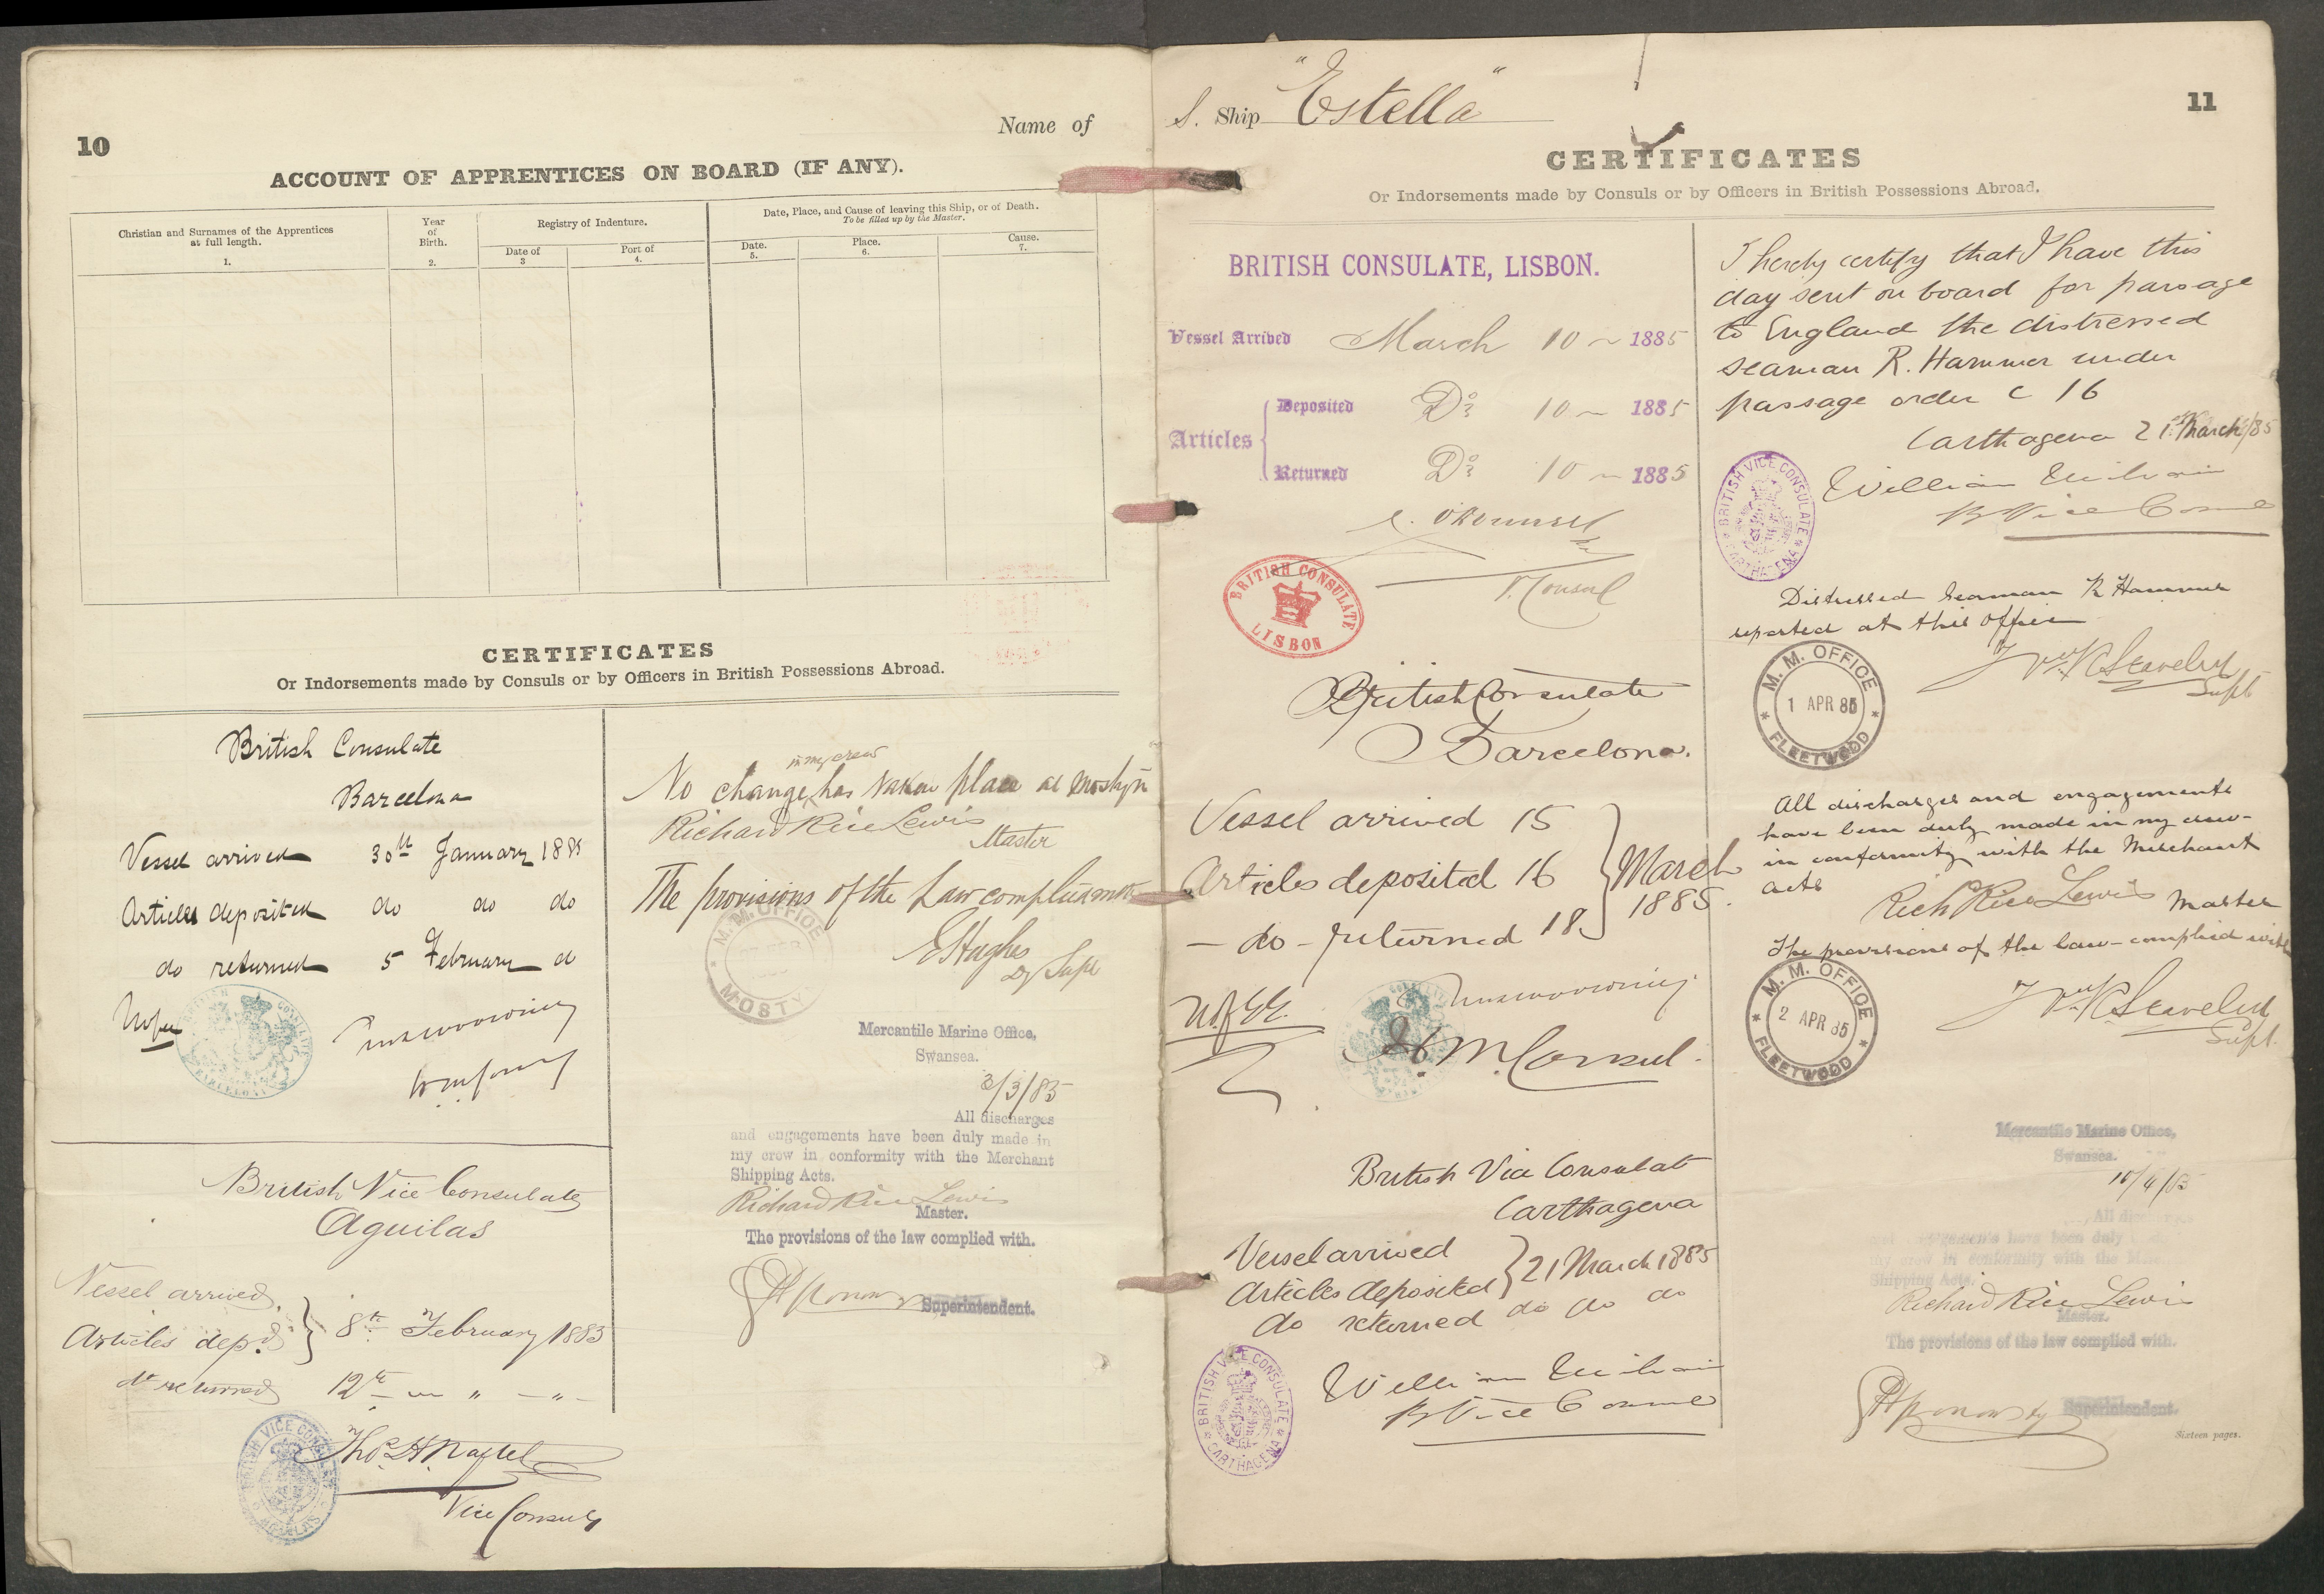 10
Name of
ACCOUNT OF APPRENTICES ON BOARD (IF ANY).
Christian and Surnames of the Apprentices
at full length.
1.
Year
of
Birth.
2.
Registry of Indenture.
Date of
3
Port of
4.
Date, Place, and Cause of leaving this Ship, or of Death.
To be filled up by the Master.
Date.
5.
Place.
6.
Cause.
7.
CERTIFICATES
Or Indorsements made by Consuls or by Officers in British Possessions Abroad.
British Consulate
Barcelona
Vessel arrived 30th January 1885
Articles deposited do do do
do returned 5 February do
British Vice Consulate
Aguilas
Vessel arrived
Articles depd. } 8th February 1885
do returned 12th " "
BRITISH VICE CONSULATE
AGUILAS
Vice Consul
in my crew
No change has taken place at Mostyn
Richard Rice Lewis
Master
The provisions of the Law complied
M. M. OFFICE
MOSTYN
E Hughes
Dy Supt
Mercantile Marine Office,
Swansea.
3/3/85
All discharges
and engagements have been duly made in
my crew in conformity with the Merchant
Shipping Acts.
Richard Rice Lewis
Master.
The provisions of the law complied with.
Superintendent.
S. Ship "Estella"
11
CERTIFICATES
Or Indorsements made by Consuls or by Officers in British Possessions Abroad.
BRITISH CONSULATE, LISBON.
Vessel Arrived March 10 ~ 1885
Articles { Deposited Do. 10 ~ 1885
Returned Do. 10 ~ 1885
V. Consul
BRITISH CONSULATE
LISBON
British Consulate
Barcelona.
Vessel arrived 15
Articles deposited 16 } March
1885.
- do - returned 18
H. M. Consul.
British Vice Consulate
Carthagena
Vessel arrived
Articles deposited } 21 March 1885
do returned do do do
BRITISH VICE CONSULATE
CARTHAGENA
William
B Vice Consul
I hereby certify that I have this
day sent on board for passage
to England the distressed
seaman R. Hammer under
passage order C 16
Carthagena 21st March/85
BRITISH VICE CONSULATE
CARTHAGENA
William
B Vice Consul
Distressed Seaman R Hammer
reported at this office
M. M. OFFICE
1 APR 85
FLEETWOOD
Supt
All discharges and engagements
have been duly made in my crew
in conformity with the Merchant
acts
Richd Rice Lewis Master
The provisions of the law complied with
M. M. OFFICE
2 APR 85
FLEETWOOD
Supt.
Mercantile Marine Office,
Swansea.
/4/85
All
have been duly
my crew in conformity with the
Shipping Acts.
Richard Rice Lewis
Master.
The provisions of the law complied with.
Superintendent.
Sixteen pages.